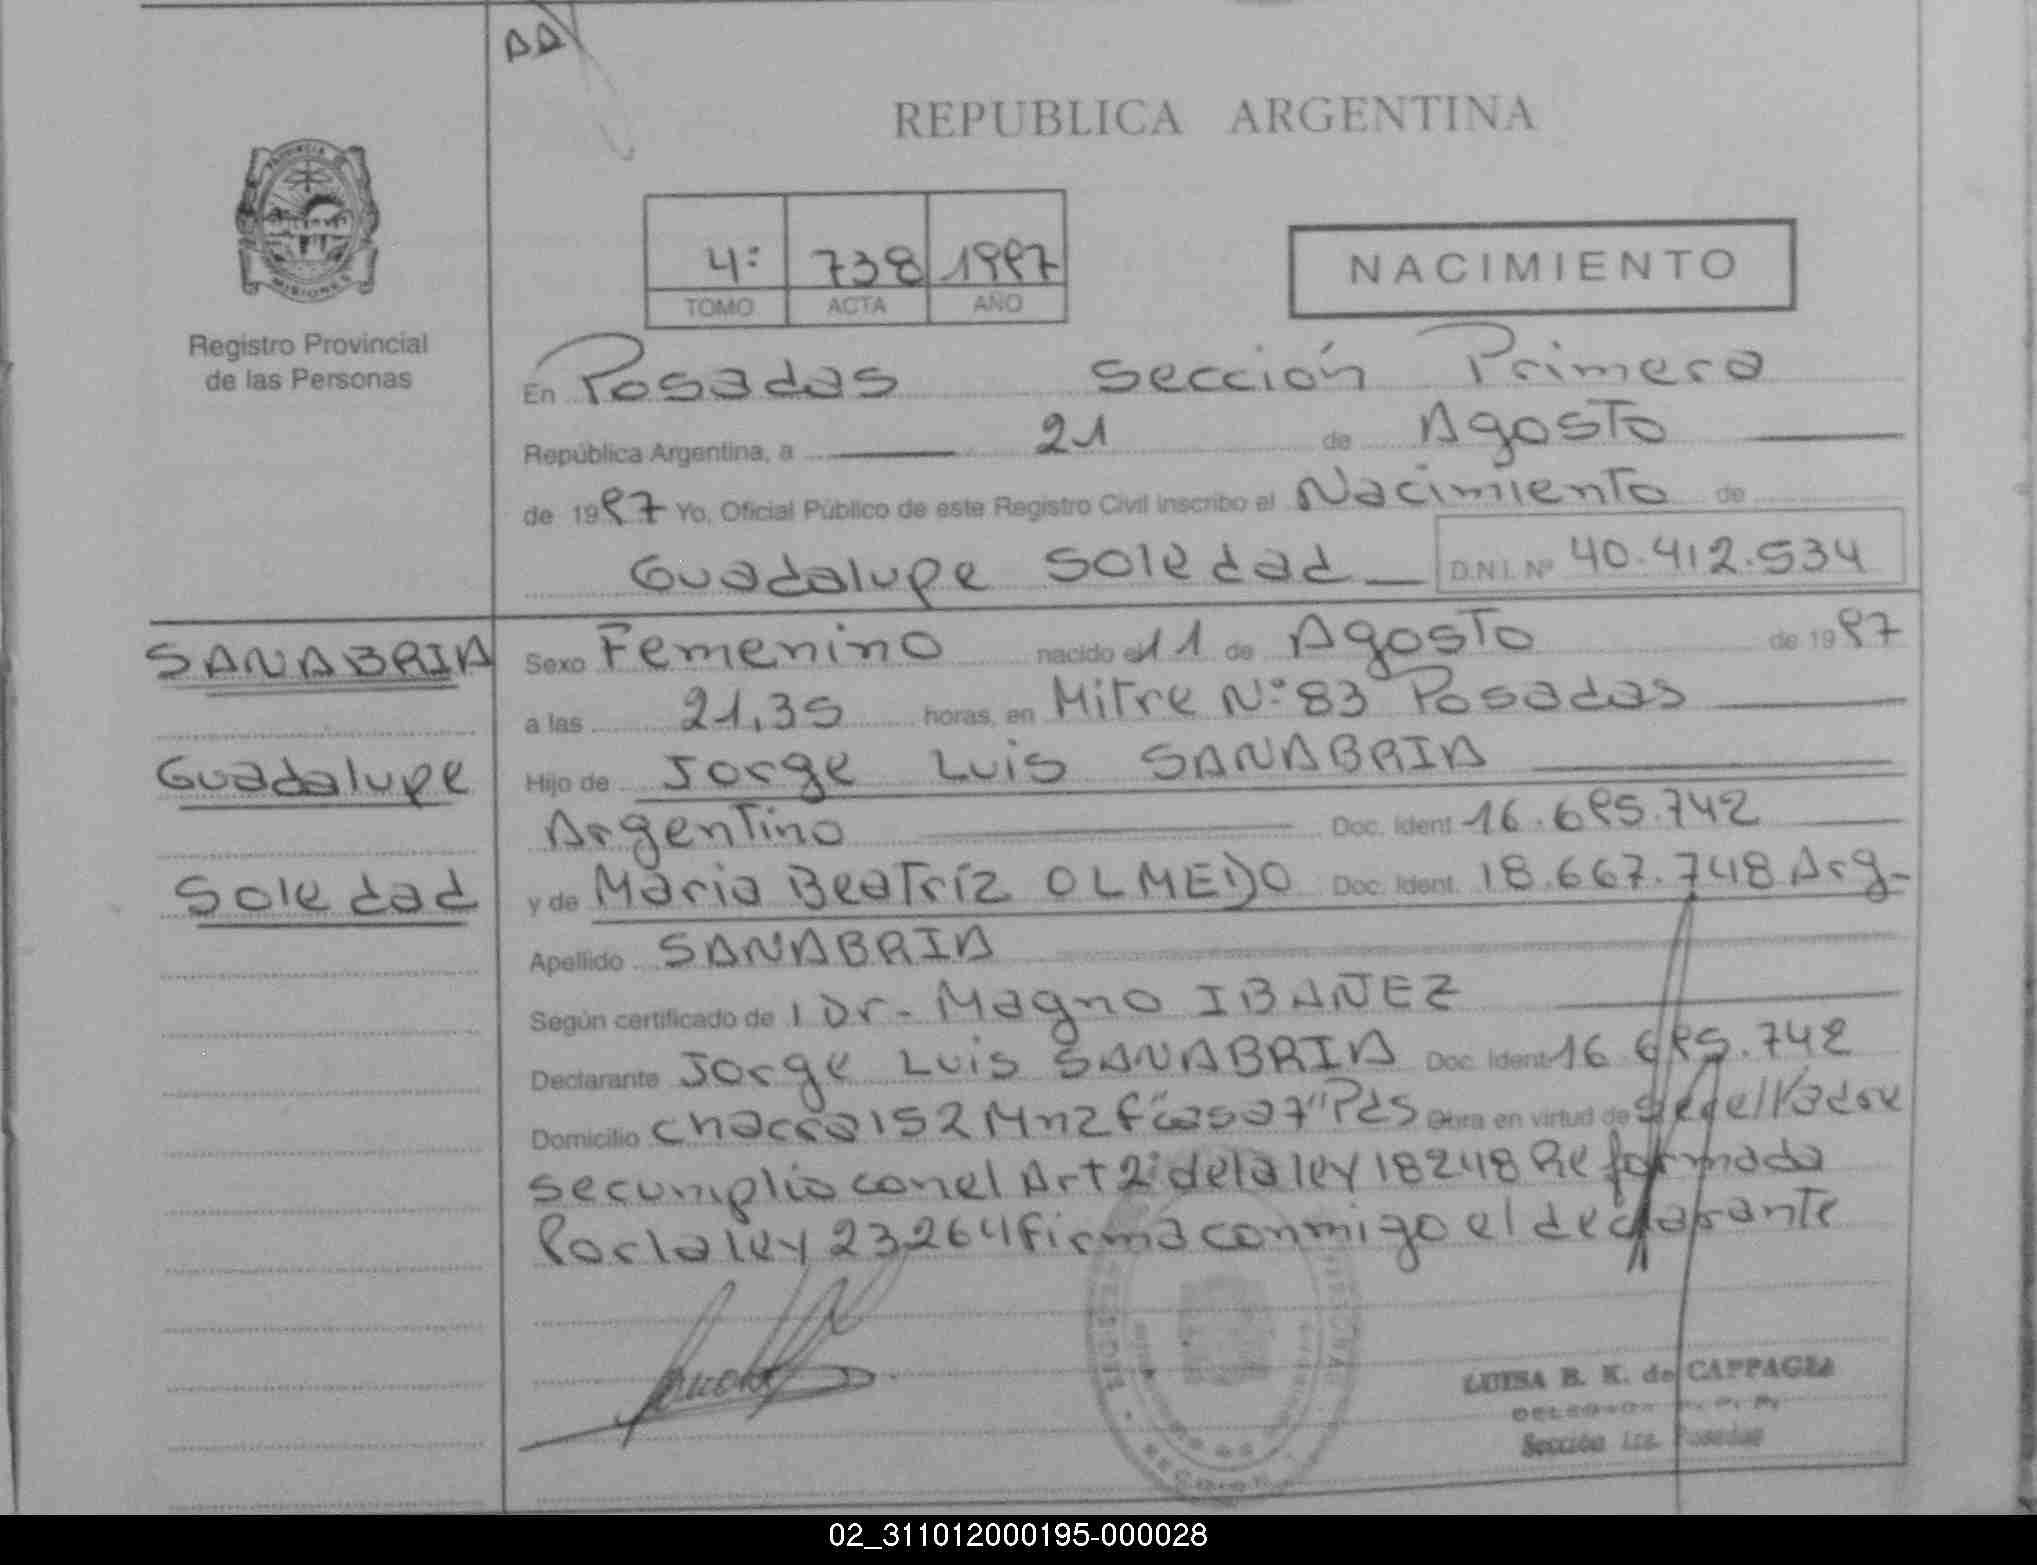 REPUBLICA ARGENTINA
PROVINCIA DE
MISIONES
Registro Provincial
de las Personas
4º 738 1997
TOMO ACTA AÑO
NACIMIENTO
En Posadas sección Primera
República Argentina, a 21 de Agosto
de 1997 Yo, Oficial Público de este Registro Civil inscribo el Nacimiento de
Guadalupe Soledad D.N.I. Nº 40.412.534
SANABRIA
Guadalupe
Soledad
Sexo Femenino nacido el 11 de Agosto de 1997
a las 21,35 horas, en Mitre Nº 83 Posadas
Hijo de Jorge Luis SANABRIA
Argentino Doc. Ident. 16.695.742
y de Maria Beatríz OLMEDO Doc. Ident. 18.667.748 Arg-
Apellido SANABRIA
Según certificado de 1 Dr. Magno IBAÑEZ
Declarante Jorge Luis SANABRIA Doc. Ident 16 695.742
Domicilio chacra 152 Mnz F casa 7 "Pds Obra en virtud de ser el Padre
se cumplio con el Art 2º de la ley 18248 Reformada
Por la ley 23264 firma conmigo el declarante
LUISA B. K. de CAPPAGLI
Sección 1ra. Posadas
02_311012000195-000028